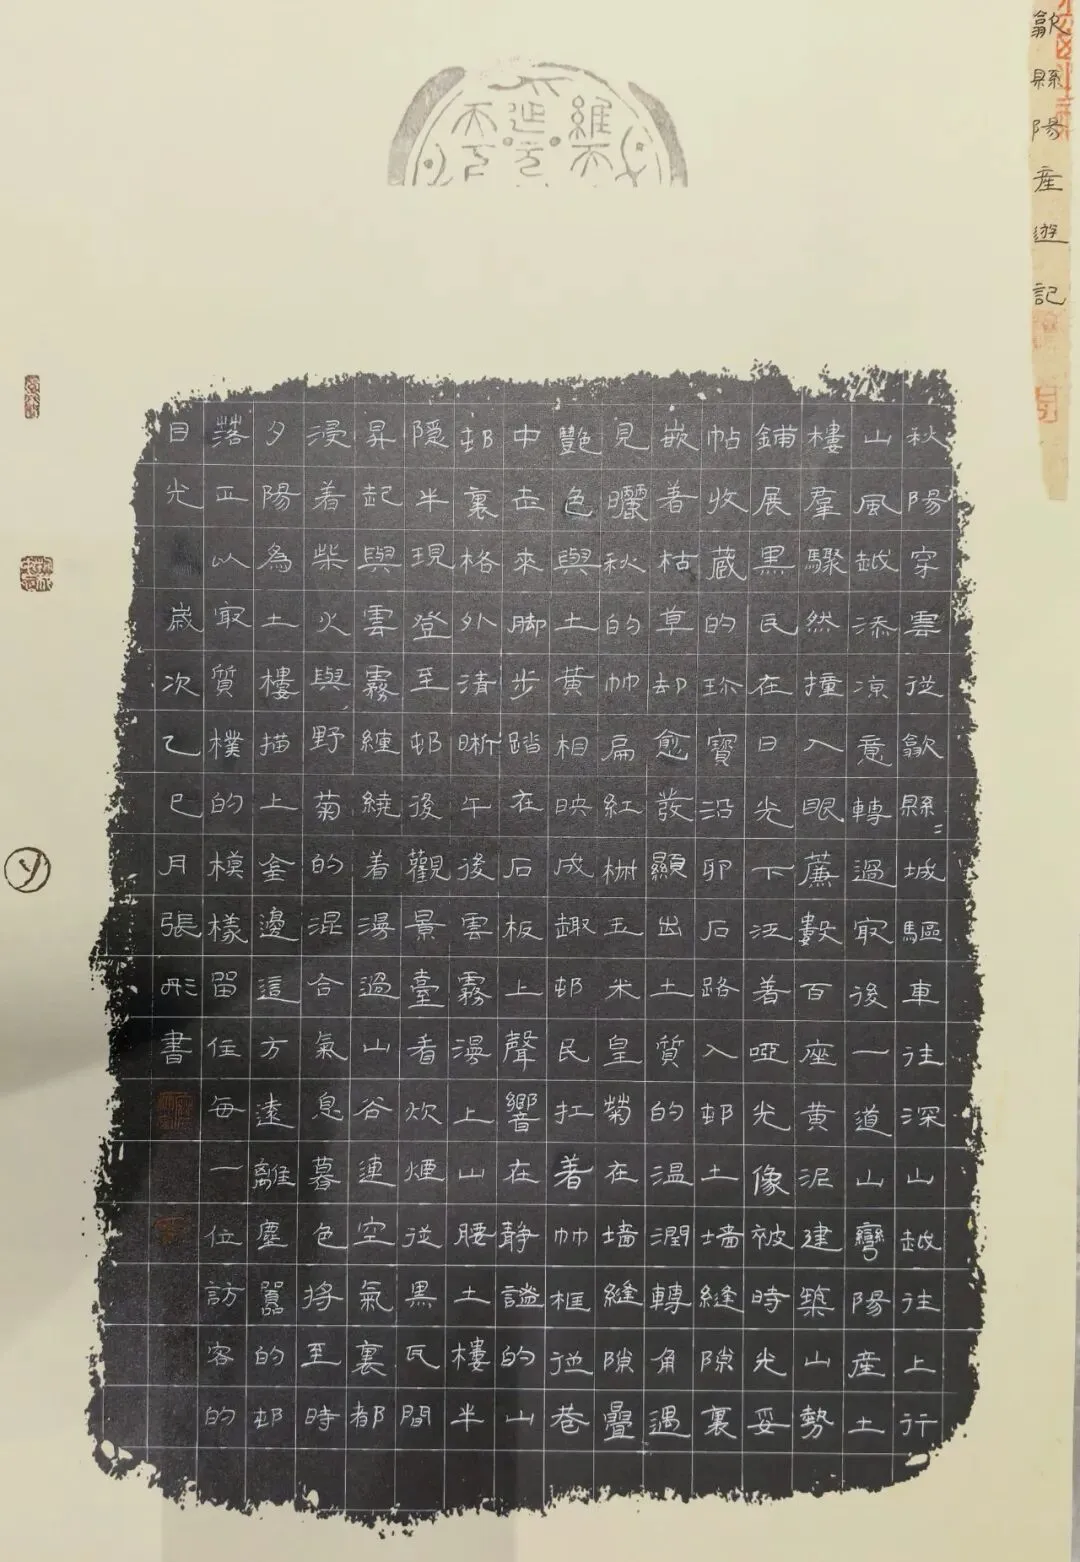 歙縣陽産遊記
秋陽穿雲從歙縣〻城驅車往深山越往上行
山風越添凉意轉過最後一道山彎陽産土
樓羣驟然撞入眼薕數百座黄泥建築山勢
鋪展黑瓦在日光下泛着啞光像被時光妥
帖收蔵的珎寶沿卵石路入邨土墙縫隙裏
嵌着枯草却愈發顯出土質的温潤轉角遇
見曬秋的竹扁紅椒玉米皇菊在墙縫隙疊
艷色與土黄相映成趣邨民扛着竹框從巷
中走來脚步踏在石板上聲響在静謐的山
邨裏格外清晰午後雲霧漫上山腰土樓半
隱半現登至邨後觀景臺看炊煙從黑瓦間
昇起與雲霧纏繞着漫過山谷連空氣裏都
浸着柴火與野菊的混合氣息暮色将至時
夕陽為土樓描上金邊這方遠離塵囂的邨
落正以最質樸的模樣留住每一位訪客的
目光 歲次乙巳月張彤書